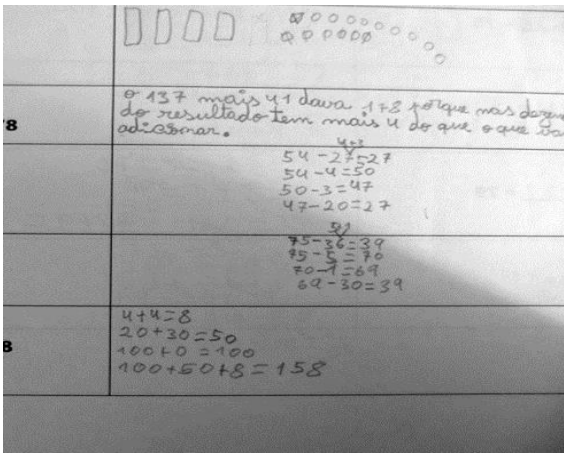 o 137 mais 41 dava 178 porque nas
do resultado tem mais 4 do que o que
adicionar.
78
4+3
54-27=27
54-4=50
50-3=47
47-20=27
5+1
75-36=39
75-5=70
70-1=69
69-30=39
4+4=8
20+30=50
8
100+0=100
100+50+8=158